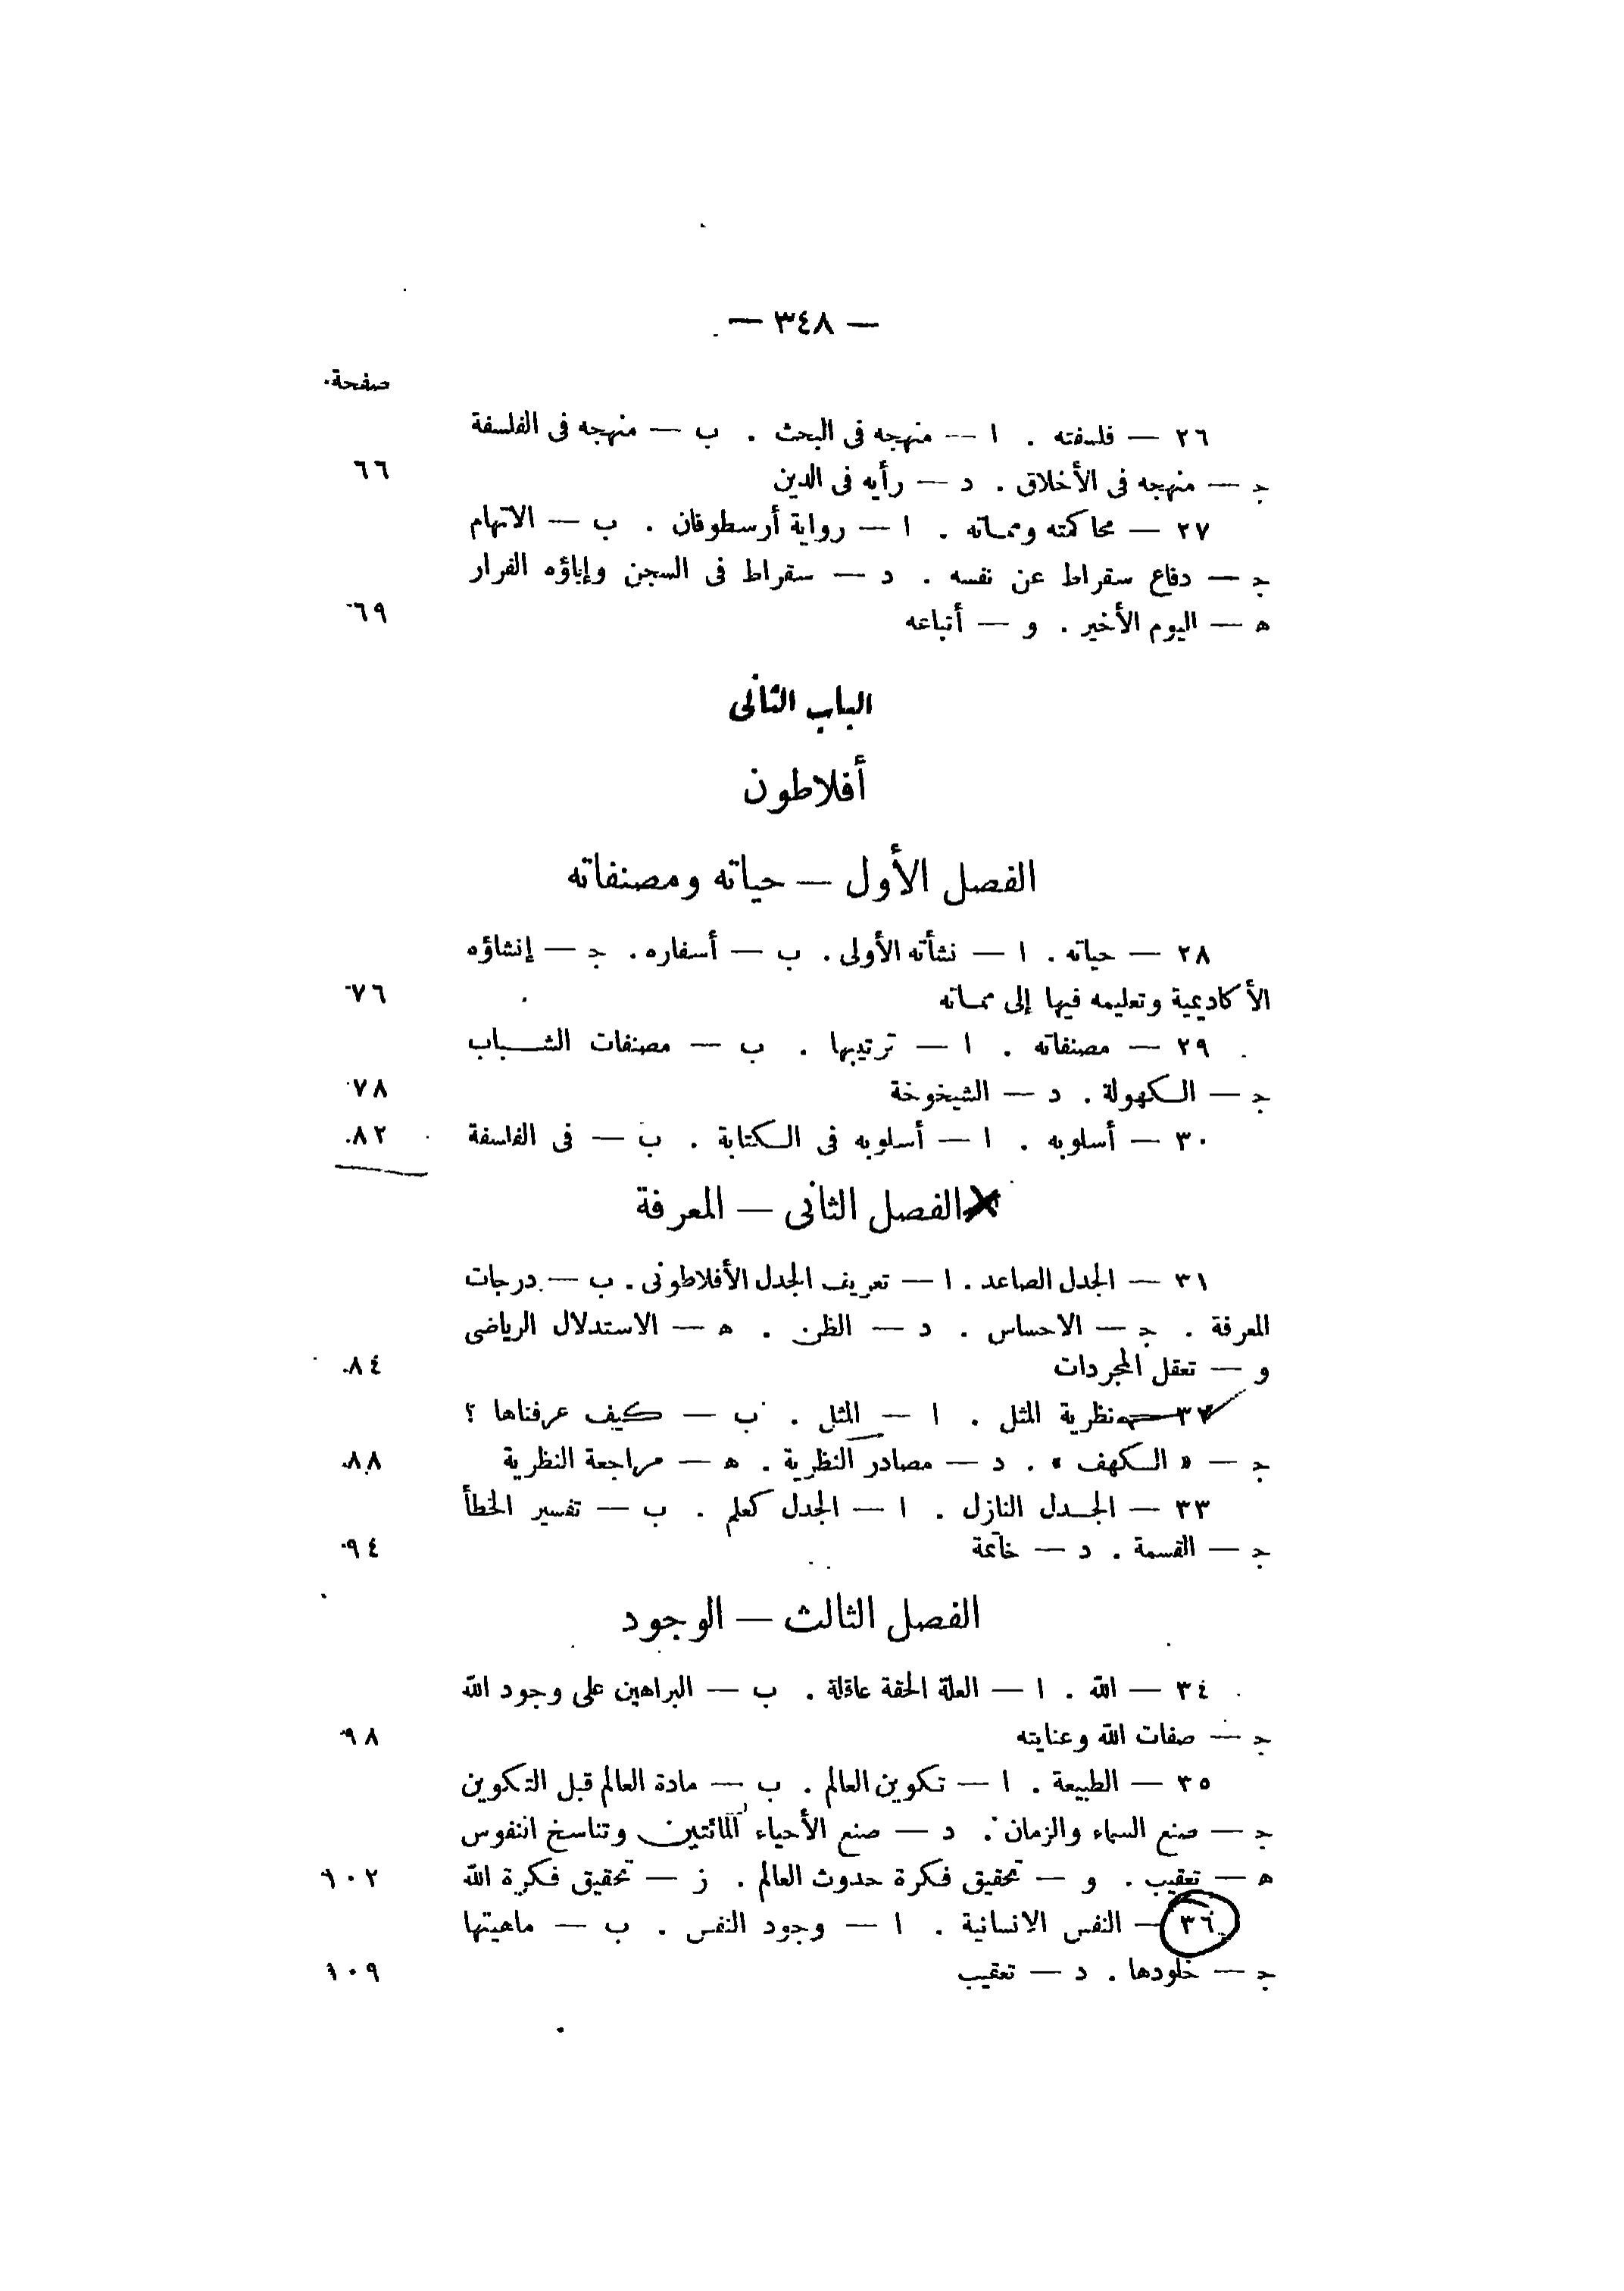 — ٣٤٨ —
صفحة
٢٦ — فلسفته . ا — منهجه فى البحث . ب — منهجه فى الفلسفة
ج — منهجه فى الأخلاق . د — رأيه فى الدين ٦٦
٢٧ — محاكمته ومماته . ا — رواية أرسطوفان . ب — الاتهام
ج — دفاع سقراط عن نفسه . د — سقراط فى السجن وإباؤه الفرار
ه — اليوم الأخير . و — أتباعه ٦٩
الباب الثانى
أفلاطون
الفصل الأول — حياته ومصنفاته
٢٨ — حياته . ا — نشأته الأولى . ب — أسفاره . ج — إنشاؤه
الأكاديمية وتعليمه فيها إلى مماته ٧٦
٢٩ — مصنفاته . ا — ترتيبها . ب — مصنفات الشباب
ج — الكهولة . د — الشيخوخة ٧٨
٣٠ — أسلوبه . ا — أسلوبه فى الكتابة . ب — فى الفلسفة ٨٢
الفصل الثانى — المعرفة
٣١ — الجدل الصاعد . ا — تعريف الجدل الأفلاطونى . ب — درجات
المعرفة . ج — الاحساس . د — الظن . ه — الاستدلال الرياضى
و — تعقل المجردات ٨٤
٣٢ — نظرية المثل . ا — المثل . ب — كيف عرفناها ؟
ج — « الكهف » . د — مصادر النظرية . ه — مراجعة النظرية ٨٨
٣٣ — الجدل النازل . ا — الجدل كعلم . ب — تفسير الخطأ
ج — القسمة . د — خاتمة ٩٤
الفصل الثالث — الوجود
٣٤ — الله . ا — العلة الحقة عاقلة . ب — البراهين على وجود الله
ج — صفات الله وعنايته ٩٨
٣٥ — الطبيعة . ا — تكوين العالم . ب — مادة العالم قبل التكوين
ج — صنع السماء والزمان . د — صنع الأحياء المائتين وتناسخ النفوس
ه — تعقيب . و — تحقيق فكرة حدوث العالم . ز — تحقيق فكرة الله ١٠٢
٣٦ — النفس الانسانية . ا — وجود النفس . ب — ماهيتها
ج — خلودها . د — تعقيب ١٠٩